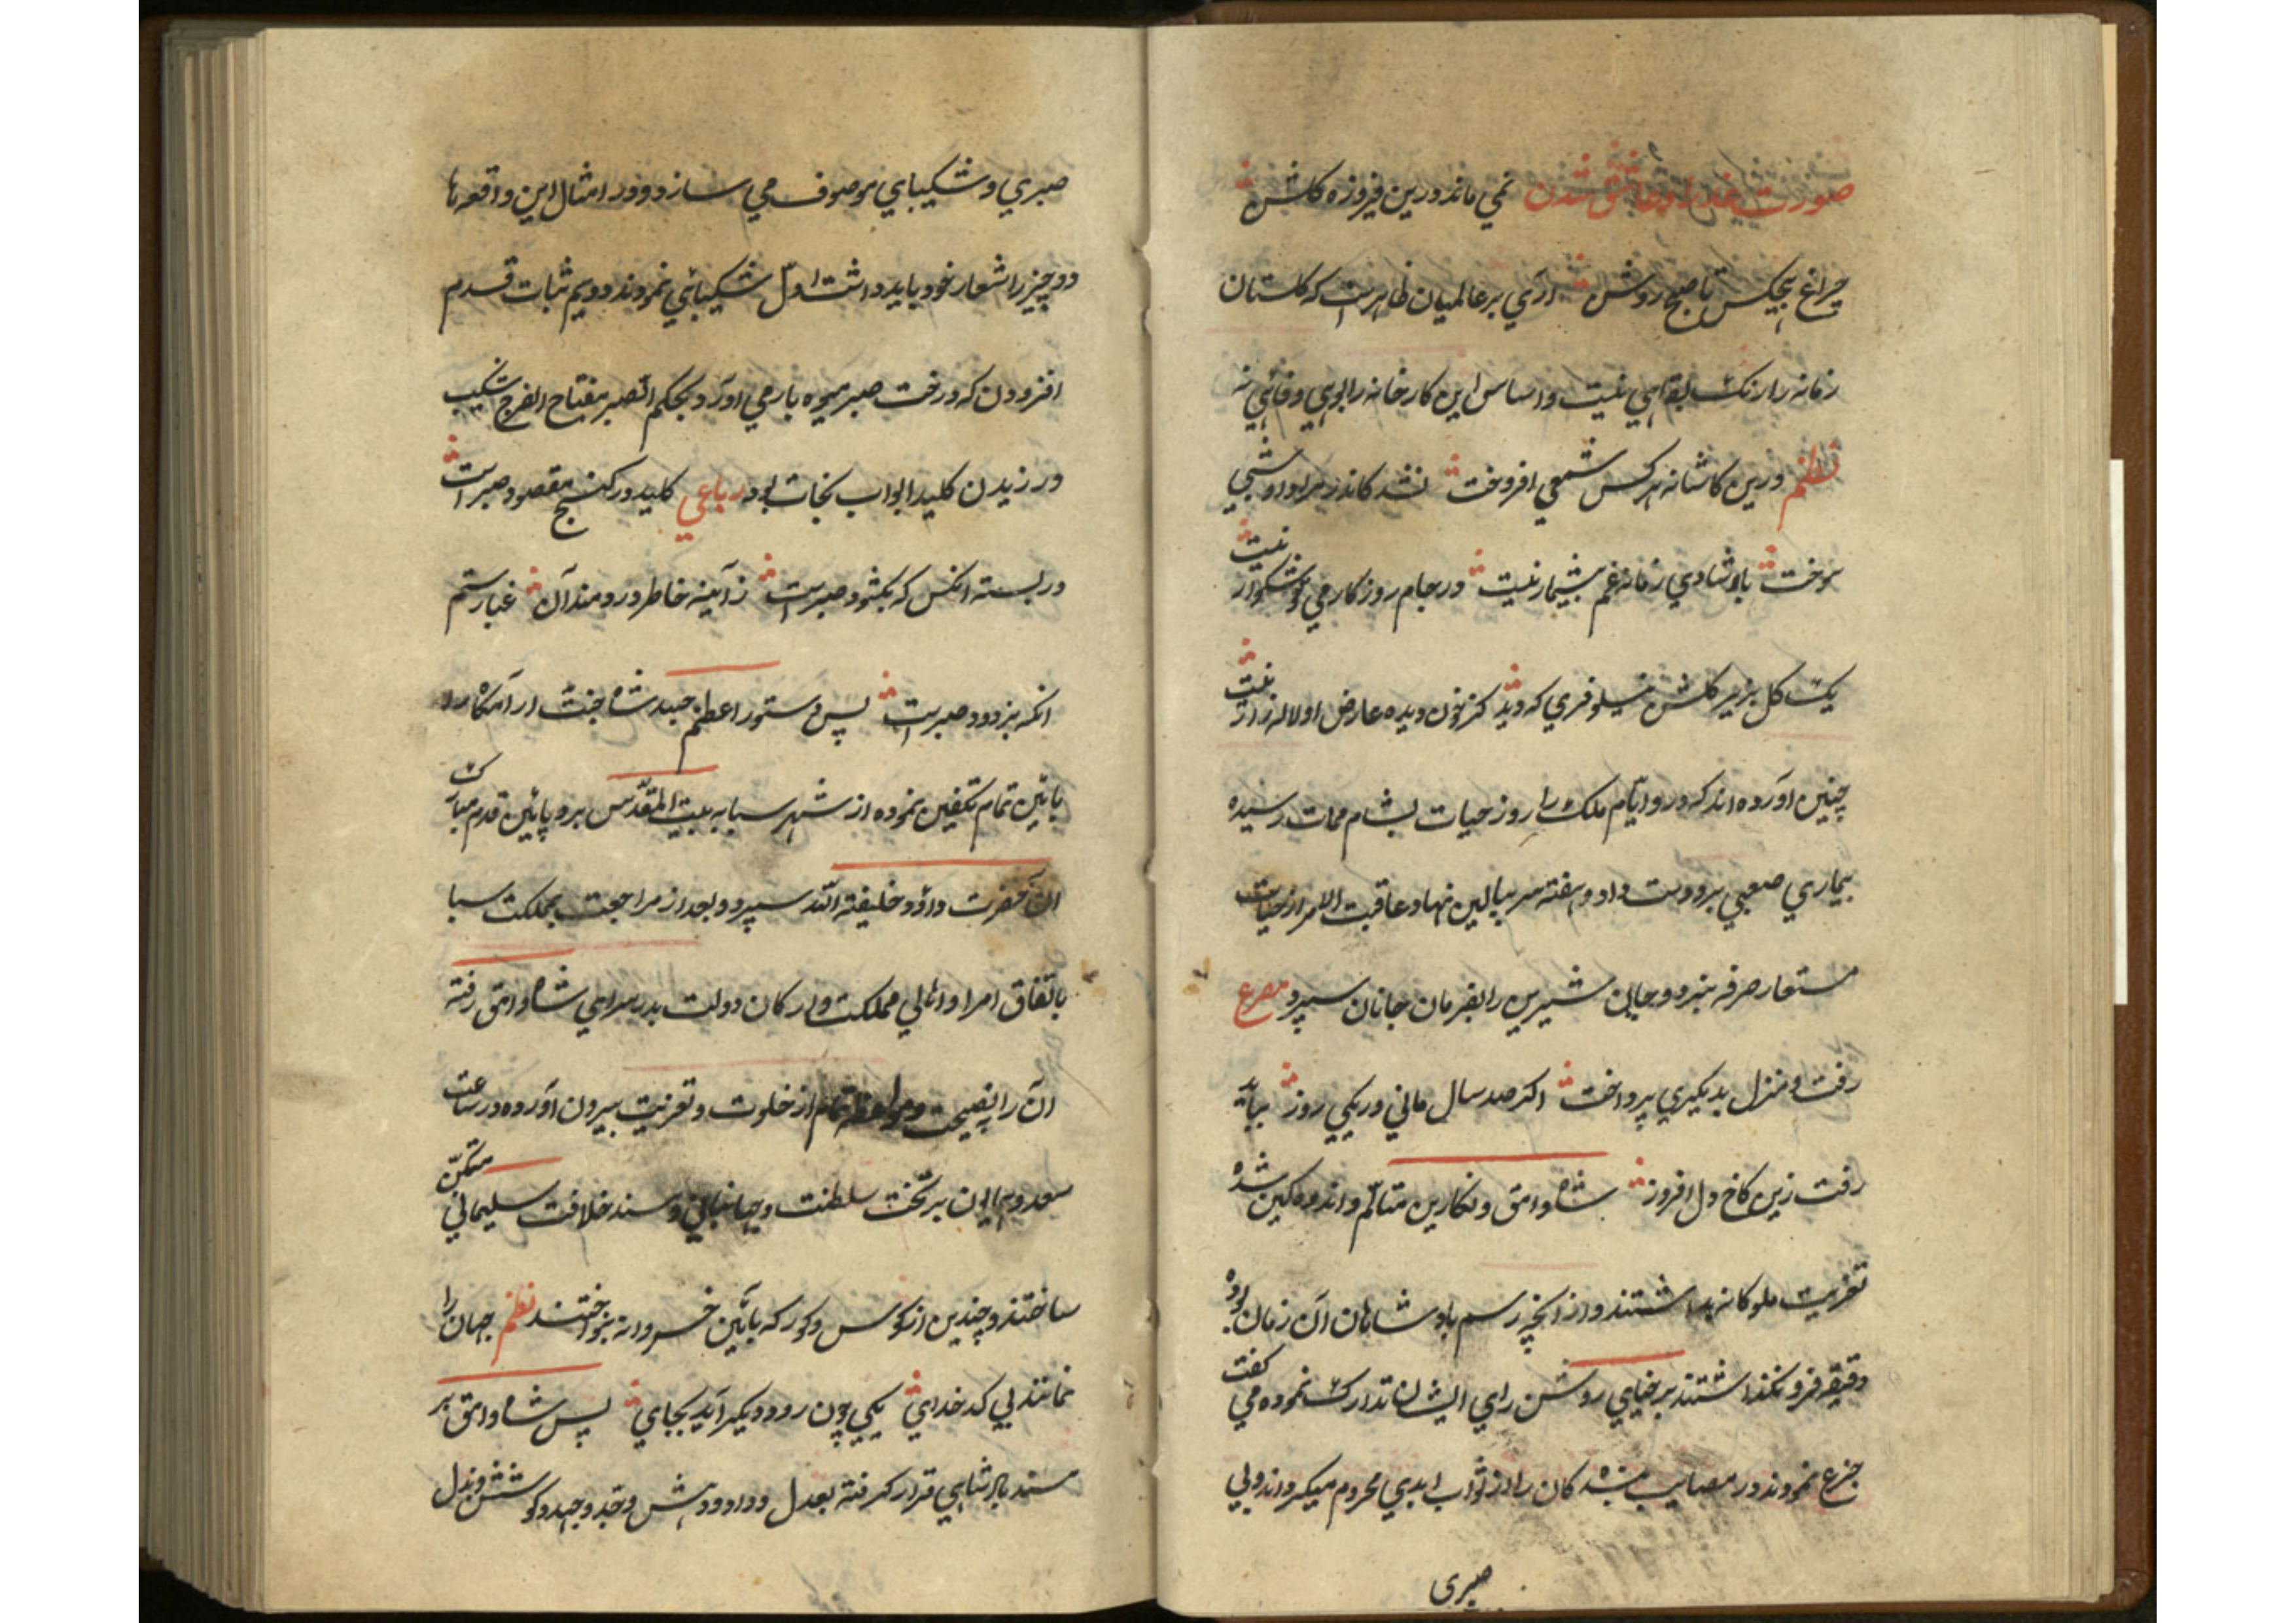 صورت عذرا و عاشق شدن نمی ماند درین فیروزه کلشن
چراغ هیچکس تا صبح روشن آری بر عالمیان ظاهرست که کلستان
زمانه را رنک بقایی نیست و اساس این کارخانه را بوی وفایی نه
نظم درین کاشانه هرکس شمعی افروخت نشد کاندر مراد او شبی
سوخت با شادی زمانه غم بیشمار نیست در جام روزکار می خوشکوار نیست
یک کل بزیر کلشن نیلوفری که دید کز خون دیده عارض او لاله زار نیست
چنین آورده اند که در و ایّام ملک را روز حیات بشام ممات رسیده
بیماری صعبی برو دست داد و هفته سر ببالین نهاد و عاقبت الامر از حیات
مستعار صرفه نبرد و جان شیرین را بفرمان جانان سپرد مصرع
رفت و منزل بدیکری پرداخت اکر صد سال مانی و ریکی روز بباید
رفت زین کاخ دل افروز شاه وامق و نکارین متالّم و اندوهکین شده
تعزیت ملوکانه بداشتند و از انچه رسم بادشاهان آن زمان بوده
دقیقه فرو نکذاشتند بر ضیای روشن رای ایشان تدارک نموده می کفت
جزع نمودن در مصایب بنده کان را از ثواب ابدی محروم میکرداند و بی
صبری
صبری و شکیبایی موصوف می سازد و در امثال این واقعه ها
دو چیز را شعار خود باید داشت اوّل شکیبائی نمودند دویم ثبات قدم
افزودن که درخت صبر میوه بار می آورد و بحکم الصبر مفتاح الفرج شکیب
ورزیدن کلید ابواب نجات بود رباعی کلید در کنج مقصود صبر است
در بسته انکس که بکشود صبر است ز آینه خاطر دردمند آن غبار ستم
انکه بزدود صبر است پس دستور اعظم جسد شاه جنّت آرامکاه را
بائین تمام تکفین نموده از شهر سبا به بیت المقدّس برد و پائین قدم مبارک
آن حضرت داؤد خلیفة الله سپرد و بعد از مراجعت بمملکت سبا
باتفاق امرا و اهالی مملکت و ارکان دولت بدر سرای شاه وامق رفته
آن را بنصیحت و مواعظ تمام از خلوت و تعزیت بیرون آورده در ساعت
سعد و همایون بر تخت سلطنت و جهانبانی و مسند خلافت سلیمانی متمکّن
ساختند و چندین از کوس و کورکه بآئین خسروانه بنواختند نظم جهان را
نمانند بی کدخدای یکی چون رود دیکر آید بجای پس شاه وامق بر
مسند بادشاهی قرار کرفته بعدل و داد و دهش و جدّ و جهد و کوشش و بذل